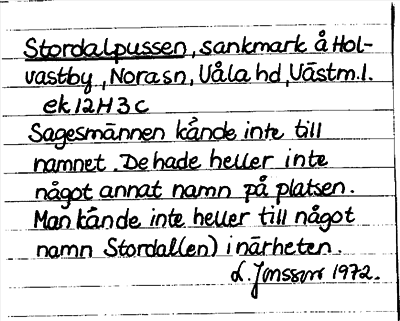 Stordalpussen, sankmark å Hol-
vastby, Nora sn, Våla hd, Västm. l.
ek 12H 3c
Sagesmännen kände inte till
namnet. De hade heller inte
något annat namn på platsen.
Man kände inte heller till något
namn Stordal(en) i närheten.
L. Jonsson 1972.